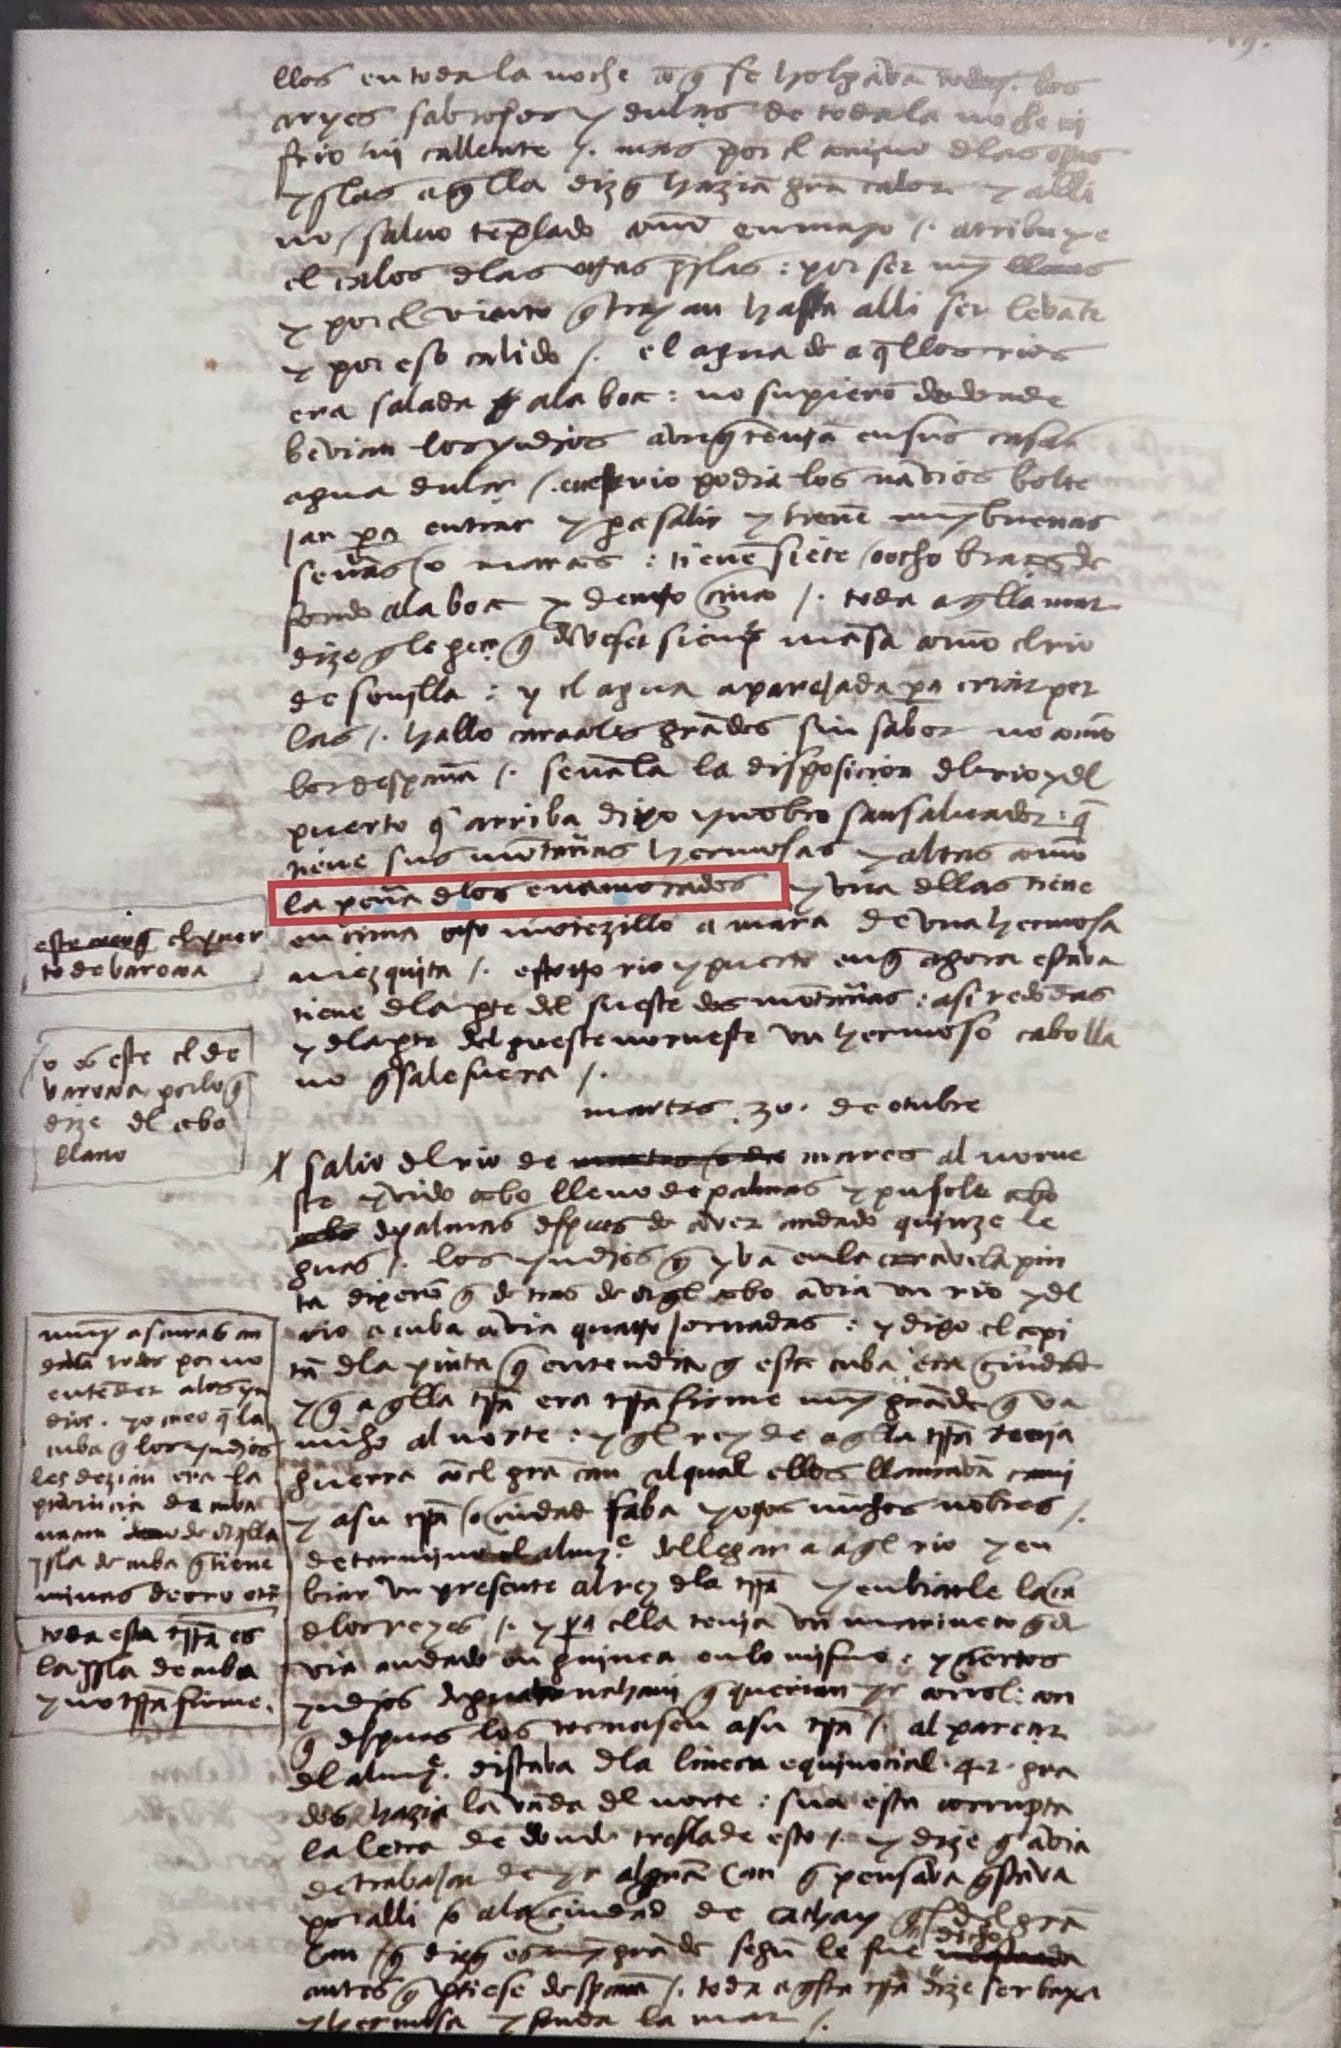 llos en toda la noche
ayres sabrosos y dulçes de toda la noche ni
frio ni caliente /. mas por el camino dlas otras
yslas aqlla dizq hazia gra calor y alli
no / salvo teplado como en mayo /. atribuye
el calor dlas otras yslas : por ser muy llanas
y por el viento q trayan hasta alli ser levate
y por eso calido /. el agua de aqllos rios
era salada a la boca : no supiero de donde
bevian los yndios aunq tenia en sus casas
agua dulçe /. en este rio podia los navios bolte
jar pa entrar y pa salir y tiene muy buenas
señas o marcas : tiene siete / o ocho braças de
fondo a la boca y dentro cinco /. toda aqlla mar
dize q le pareçe q deve ser siempre mansa como el rio
de sevilla : y el agua aparejada pa criar per
las /. hallo caracoles grades sin sabor no como
los despaña /. señala la disposiçion del rio y dl
puerto q arriba dixo y nombro san salvador : q
tiene sus motañas hermosas y altas como
la peña dlos enamorados y una dllas tiene
ençima otro motezillo a manera de una hermosa
mezquita /. este otro rio y puerto en q agora estava
tiene dla pte del sueste dos motañas : asi redodas
y dla pte del gueste norueste un hermoso cabo lla
no q sale fuera /.
martes .30. de otubre
salio dl rio de mares al norue
ste y vido cabo lleno de palmas y pusole cabo
de palmas despues de aver andado quinze le
guas /. los yndios q yva en la caravela pin
ta dixero q detras de aql cabo avia un rio y dl
rio a cuba avia quatro jornadas : y dixo el capi
ta dla pinta q entendia q esta cuba era çiudad
y q aqlla trra era trra firme muy grade q va
mucho al norte : y ql rey de aqlla trra tenia
guerra con el gra can al qual ellos llamava cami
y a su trra / o çiudad faba y otros muchos nobres /.
determino el almie dellegar a aql rio y en
biar un presente al rey dla trra y enbiarle la carta
dlos reyes /. y pa ella tenia un marinero q a
via andado en guinea en lo mismo : y çiertos
yndios de guanahani q querian yr con el : con
q despues los tornasen a su trra /. al pareçer
dl almie. distava dla linea equinocial .42. gra
dos hazia la vada dl norte : si no esta corrupta
la letra de donde traslade esto /. y dize q avia
de trabajar de yr al gra can q pensava q stava
por alli / o ala çiudad de cathay q es dl gra
can / q dizq es muy grade segu le fue dicho
antes q ptiese despaña /. toda aqsta trra dize ser baxa
y hermosa y fonda la mar /.
el puer
to de baracoa
o es este el de
baracoa por lo q
dize dl cabo
llano
muy a escuras an
dava todos por no
enteder alos yn
dios . yo creo q la
cuba q los yndios
les dezian era la
provinçia de cuba
nacan de aqlla
ysla de cuba q tiene
minas de oro etc
toda esta trra es
la ysla de cuba
y no trra firme.